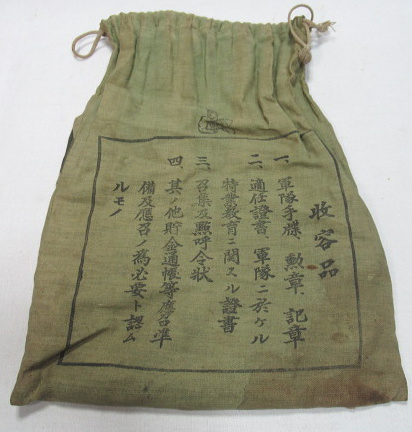 收容品
一、軍隊手牒、勲章、記章
二、適任證書、軍隊ニ於ケル
特業教育ニ関スル證書
三、召集及點呼令状
四、其ノ他貯金通帳等應召準
備及應召ノ爲必要ト認ム
ルモノ